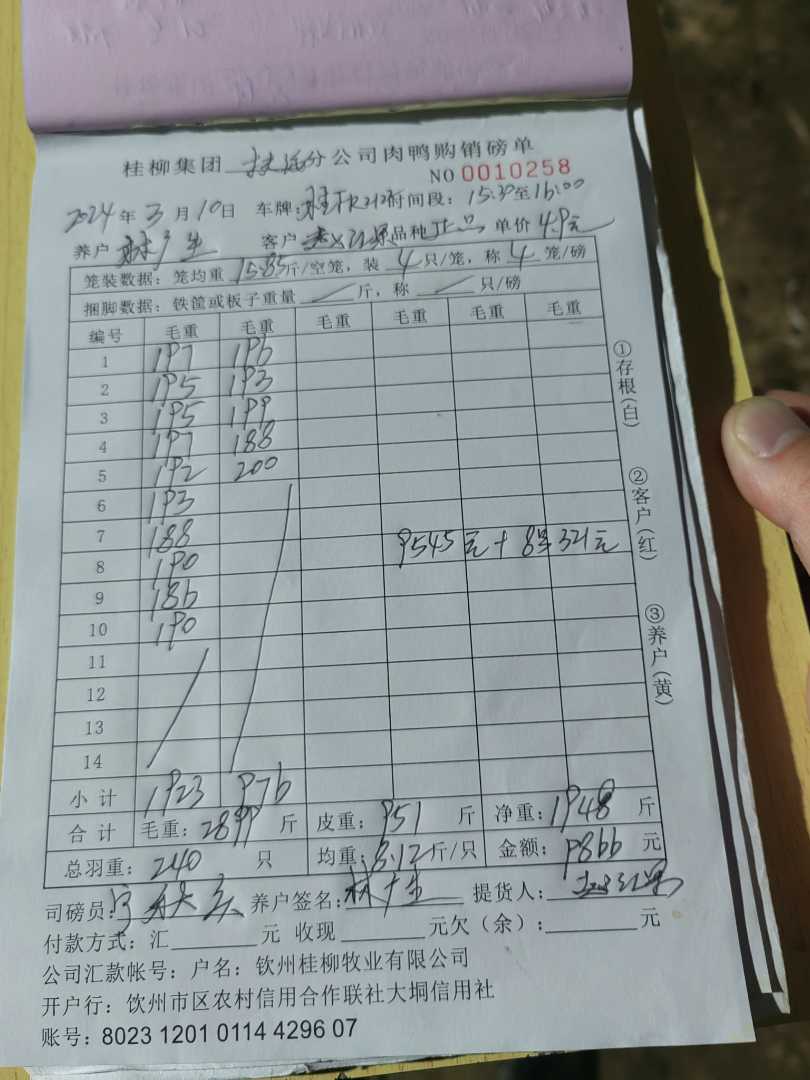 桂柳集团 分公司肉鸭购销磅单
NO 0010258
2024年3月10日 车牌: 时间段: 15:30至16:00
养户 林广生 客户 品种 正品 单价 4.9元
笼装数据: 笼均重 15.85斤/空笼, 装 4 只/笼, 称 4 笼/磅
捆脚数据: 铁筐或板子重量 / 斤, 称 / 只/磅
编号 毛重 毛重 毛重 毛重 毛重 毛重
1 197 196
2 195 193
3 195 199
4 197 188
5 192 200
6 193
7 188
8 190
9545元+ 321元
9 186
10 190
11
12
13
14
小计 1923 976
合计 毛重: 2899 斤 皮重: 951 斤 净重: 1948 斤
总羽重: 240 只 均重: 8.12斤/只 金额: 9866 元
司磅员: 养户签名: 林广生 提货人:
付款方式: 汇 元 收现 元欠(余): 元
公司汇款帐号: 户名: 钦州桂柳牧业有限公司
开户行: 钦州市区农村信用合作联社大垌信用社
账号: 8023 1201 0114 4296 07
①存根(白)
②客户(红)
③养户(黄)